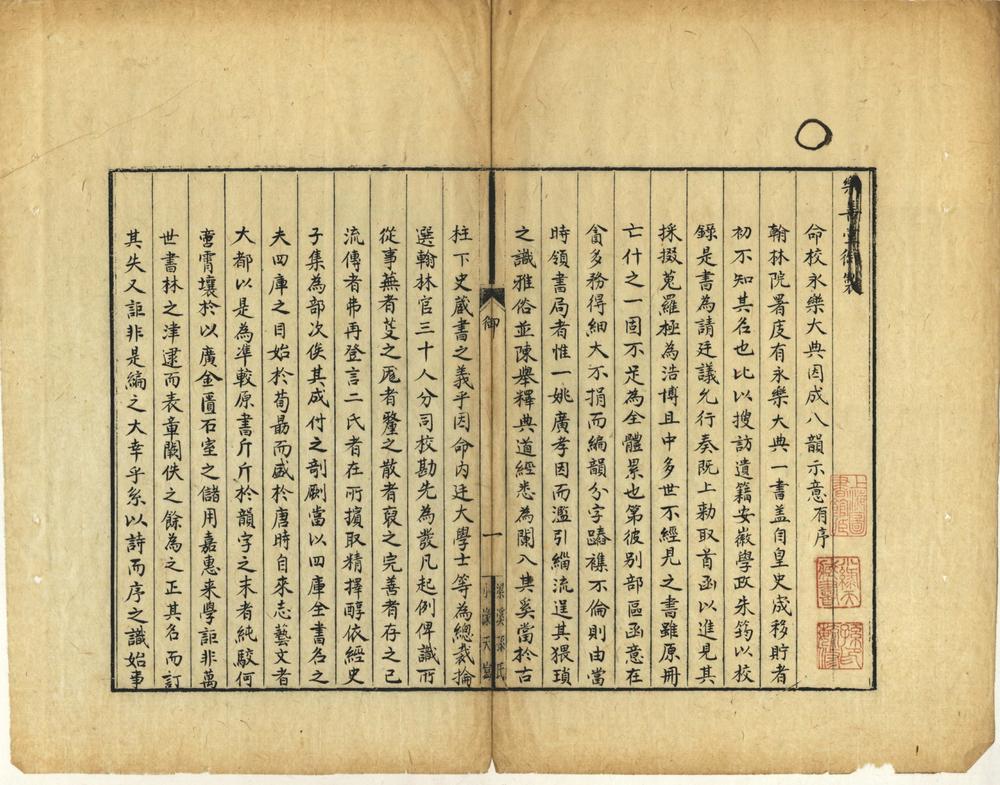 樂善堂御製
命校永樂大典因成八韻示意有序
翰林院署庋有永樂大典一書蓋自皇史宬移貯者
初不知其名也比以搜訪遺籍安徽學政朱筠以校
錄是書為請廷議允行奏既上勅取首函以進見其
採掇蒐羅極為浩博且中多世不經見之書雖原冊
亡什之一固不足為全體累也第彼別部區函意在
貪多務得細大不捐而編韻分字蹖襍不倫則由當
時領書局者惟一姚廣孝因而濫引緇流逞其猥瑣
之識雅俗並陳舉釋典道經悉為闌入其奚當於古
御
一
梁溪孫氏
小淥天鈔
柱下史藏書之義乎因命內廷大學士等為總裁掄
選翰林官三十人分司校勘先為發凡起例俾識所
從事蕪者芟之厖者釐之散者裒之完善者存之已
流傳者弗再登言二氏者在所擯取精擇醇依經史
子集為部次俟其成付之剞劂當以四庫全書名之
夫四庫之目始於荀勗而盛於唐時自來志藝文者
大都以是為準較原書斤斤於韻字之末者純駁何
啻霄壤於以廣金匱石室之儲用嘉惠來學詎非萬
世書林之津逮而表章闕佚之餘為之正其名而訂
其失又詎非是編之大幸乎系以詩而序之識始事
上海圖
書館藏
小淥天
藏書
孫氏